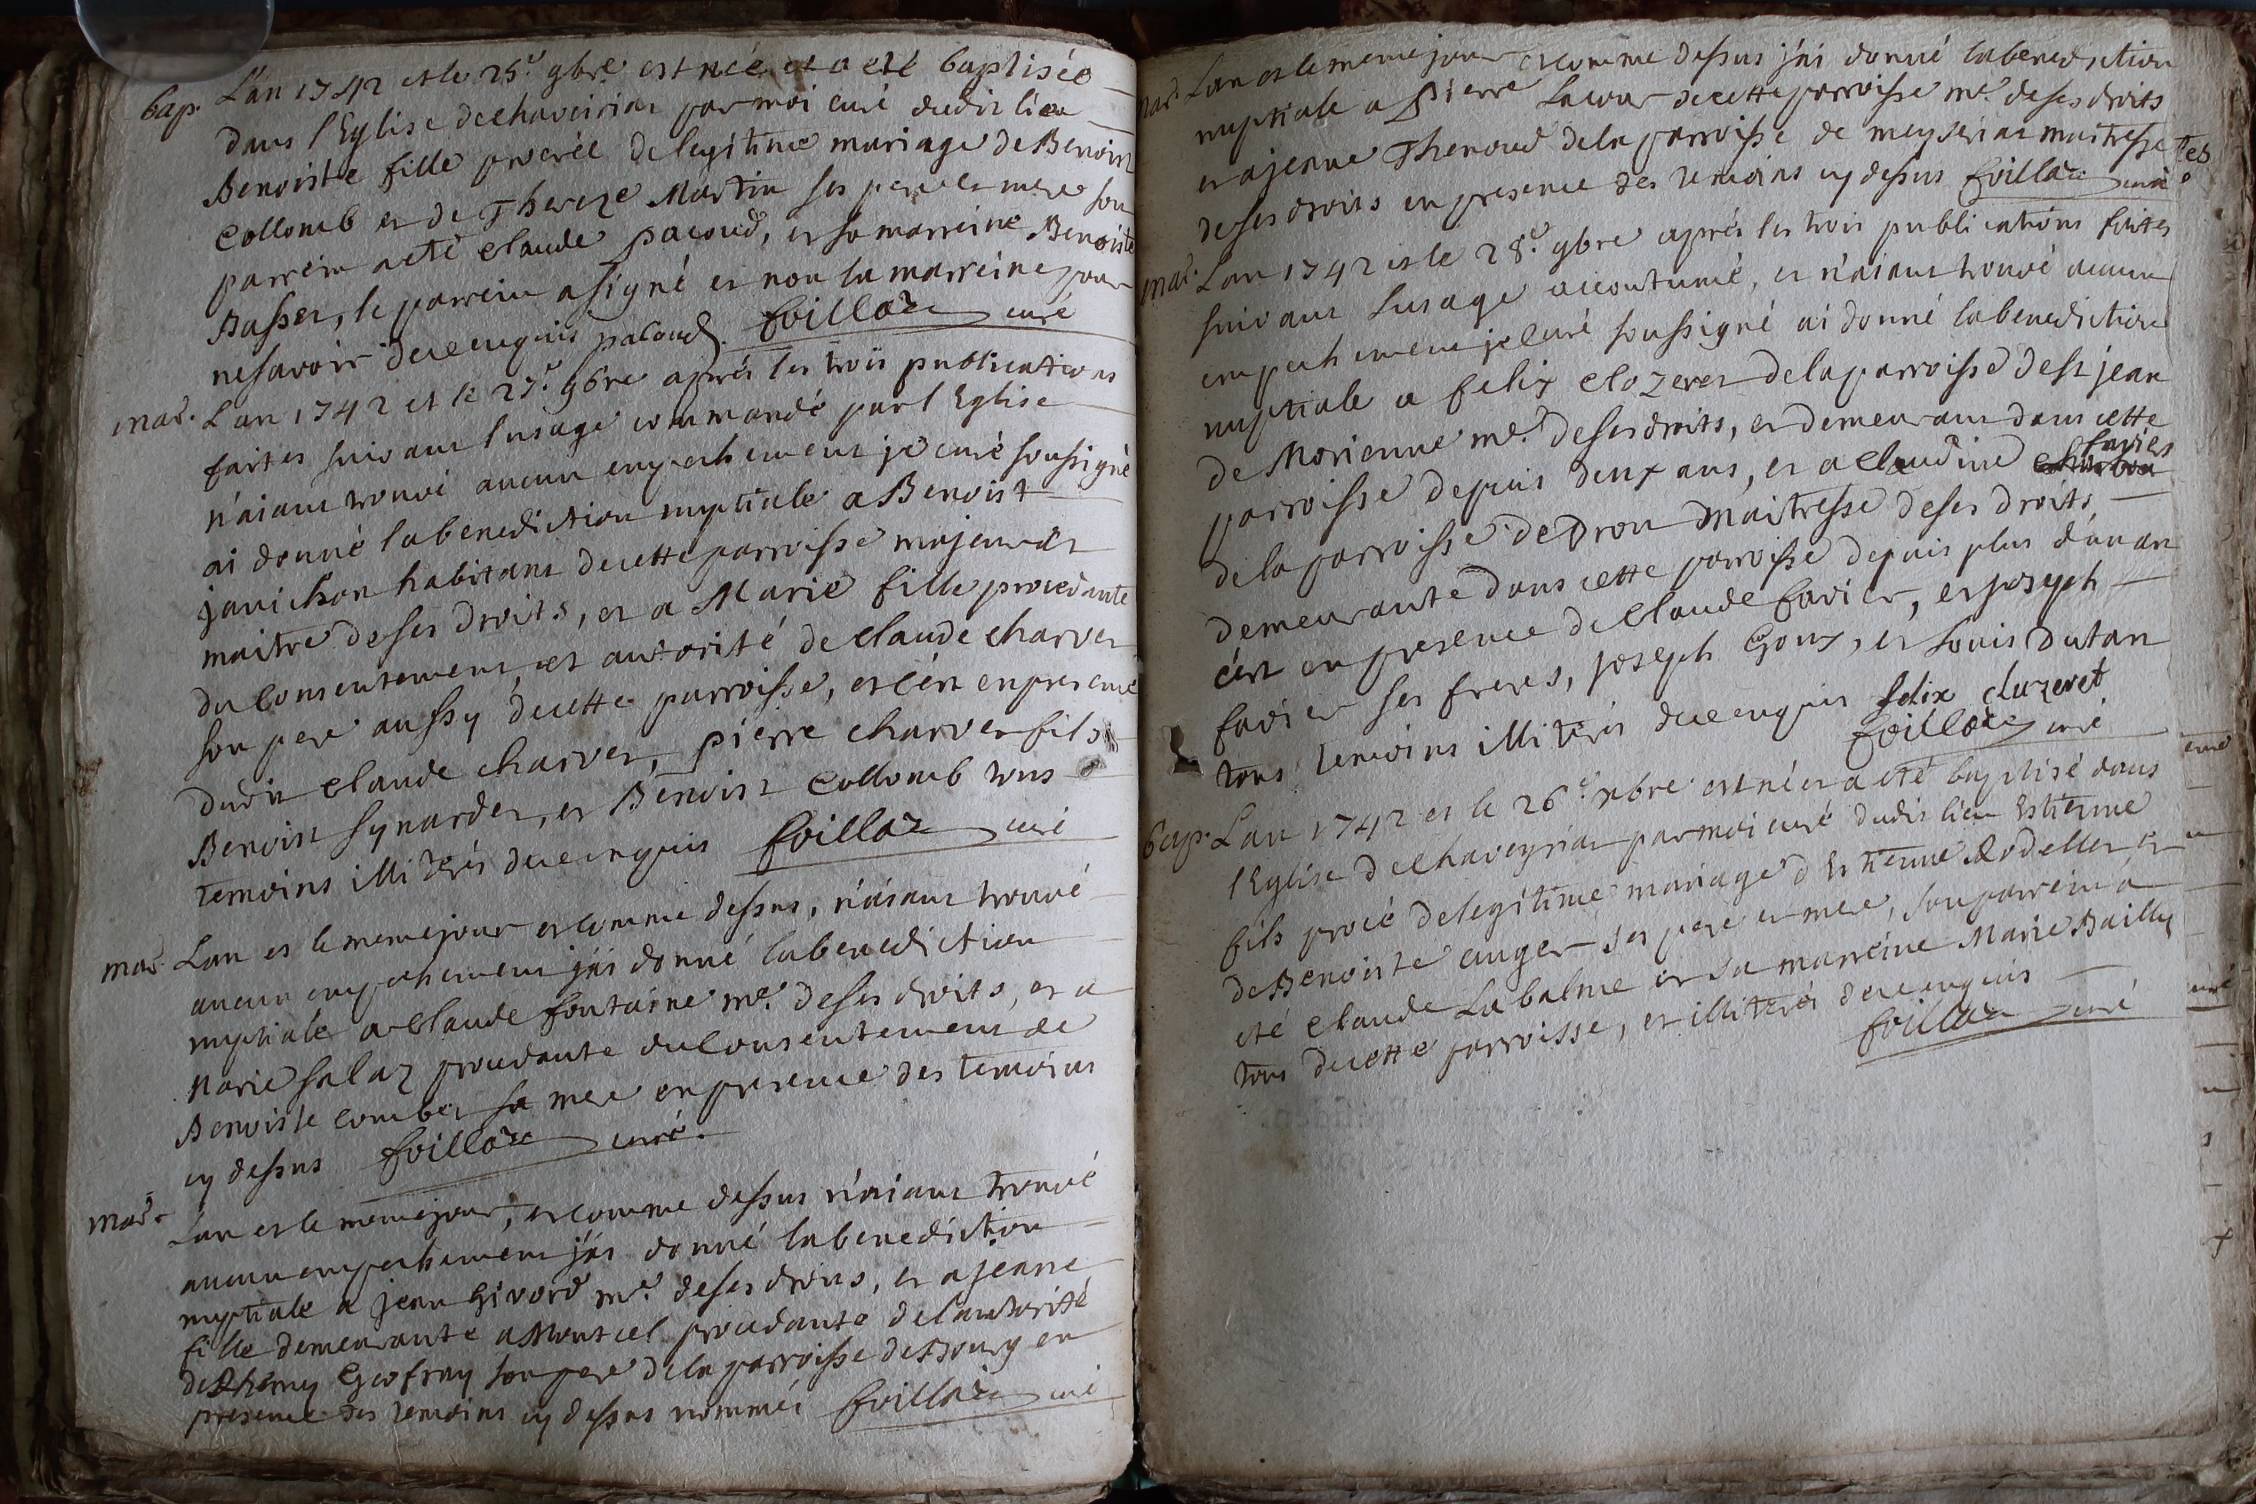 bap. L'an 1742 et le 25.e 9bre est née et a eté baptisée
dans l'Eglise de chaveirian par moi curé dudit lieu
Benoiste fille procrée de legitime mariage de Benoist
Collomb et de Thereze Martin ses pere et mere son
parrein a eté claude pacoud, et sa marreine Benoiste
Basset, le parrein a signé et non la marreine pour
ne savoir de ce enquis pacoud foillaz curé
mar. L'an 1742 et le 27.e 9bre aprés les trois publications
faites suivant l'usage commandé par l Eglise
n'aiant trouvé aucun empechement je curé soussigné
ai donné la benediction nuptiale a Benoist
janichon habitant de cette parroisse majeur et
maitre de ses droits, et a Marie fille procedante
du consentement, et autorité de claude charvet
son pere aussy de cette parroisse, et c'est en presence
dudit claude charvet, pierre charvet fils
Benoist synardet, et Benoist Collomb tous
temoins illiterés de ce enquis foillaz curé
mar. L'an et le meme jour et comme dessus, n'aiant trouvé
aucun empechement j'ai donné la benediction
nuptiale a claude fontaine me. de ses droits, et a
Marie salaz procedante du consentement de
Benoiste combet sa mere en presence des temoins
cy dessus foillaz curé.
mar. L'an et le meme jour, et comme dessus n'aiant trouvé
aucun empechement j'ai donné la benediction
nuptiale a jean Givord me. de ses droits, et a jeanne
fille demeurante a Montcel procedante de l'autorité
de Themy Geofray son pere de la parroisse de Bourg en
presence des temoins cy dessus nommés foillaz curé
mar. L'an et le meme jour et comme dessus j'ai donné la benediction
nuptiale a Pierre Lacour de cette parroisse me. de ses droits
et a jeanne Thenoud de la parroisse de meyseriat maitresse
de ses droits en presence des temoins cy dessus foillaz curé
mar. L'an 1742 et le 28.e 9bre aprés les trois publications faites
suivant l'usage accoutumé, et n'aiant trouvé aucun
empechement je curé soussigné ai donné la benediction
nuptiale a felix clozeret de la parroisse de st jean
de Morienne me. de ses droits, et demeurant dans cette
parroisse depuis deux ans, et a claudine favier
de la parroisse de Drou maitresse de ses droits,
demeurante dans cette parroisse depuis plus d'un an
c'est en presence de claude favier, et joseph
favier ses freres, joseph Goux, et Louis Dutan
tous temoins illiterés de ce enquis felix cluzeret
foillaz curé
bap. L'an 1742 et le 26.e xbre est né et a eté baptisé dans
l'Eglise de chaveyriat par moi curé dudit lieu Estienne
fils procré de legitime mariage d'Estienne Rodellet et
de Benoiste auger ses pere et mere, son parrein a
eté claude Labalme et sa marreine Marie Bailly
tous de cette parroisse, et illiterés de ce enquis
foillaz curé